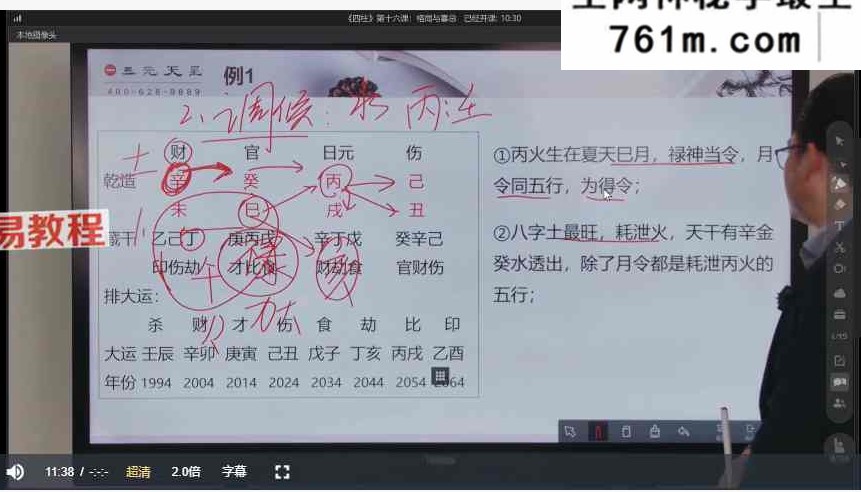 761m.com
《四柱》第十六课：格局与喜忌 已经开课：10:30
本地摄像头
三元天星
400-628-8889
例1
2、调候：水 丙：旺
财 官 日元 伤
乾造 辛 癸 丙 己
未 巳 戌 丑
藏干 乙己丁 庚丙戊 辛丁戊 癸辛己
印伤劫 才比食 财劫食 官财伤
排大运：
杀 财 才 伤 食 劫 比 印
大运 壬辰 辛卯 庚寅 己丑 戊子 丁亥 丙戌 乙酉
年份 1994 2004 2014 2024 2034 2044 2054 2064
①丙火生在夏天巳月，禄神当令，月
令同五行，为得令；
②八字土最旺，耗泄火，天干有辛金
癸水透出，除了月令都是耗泄丙火的
五行；
易教程
11:38 / -:-:- 超清 2.0倍 字幕